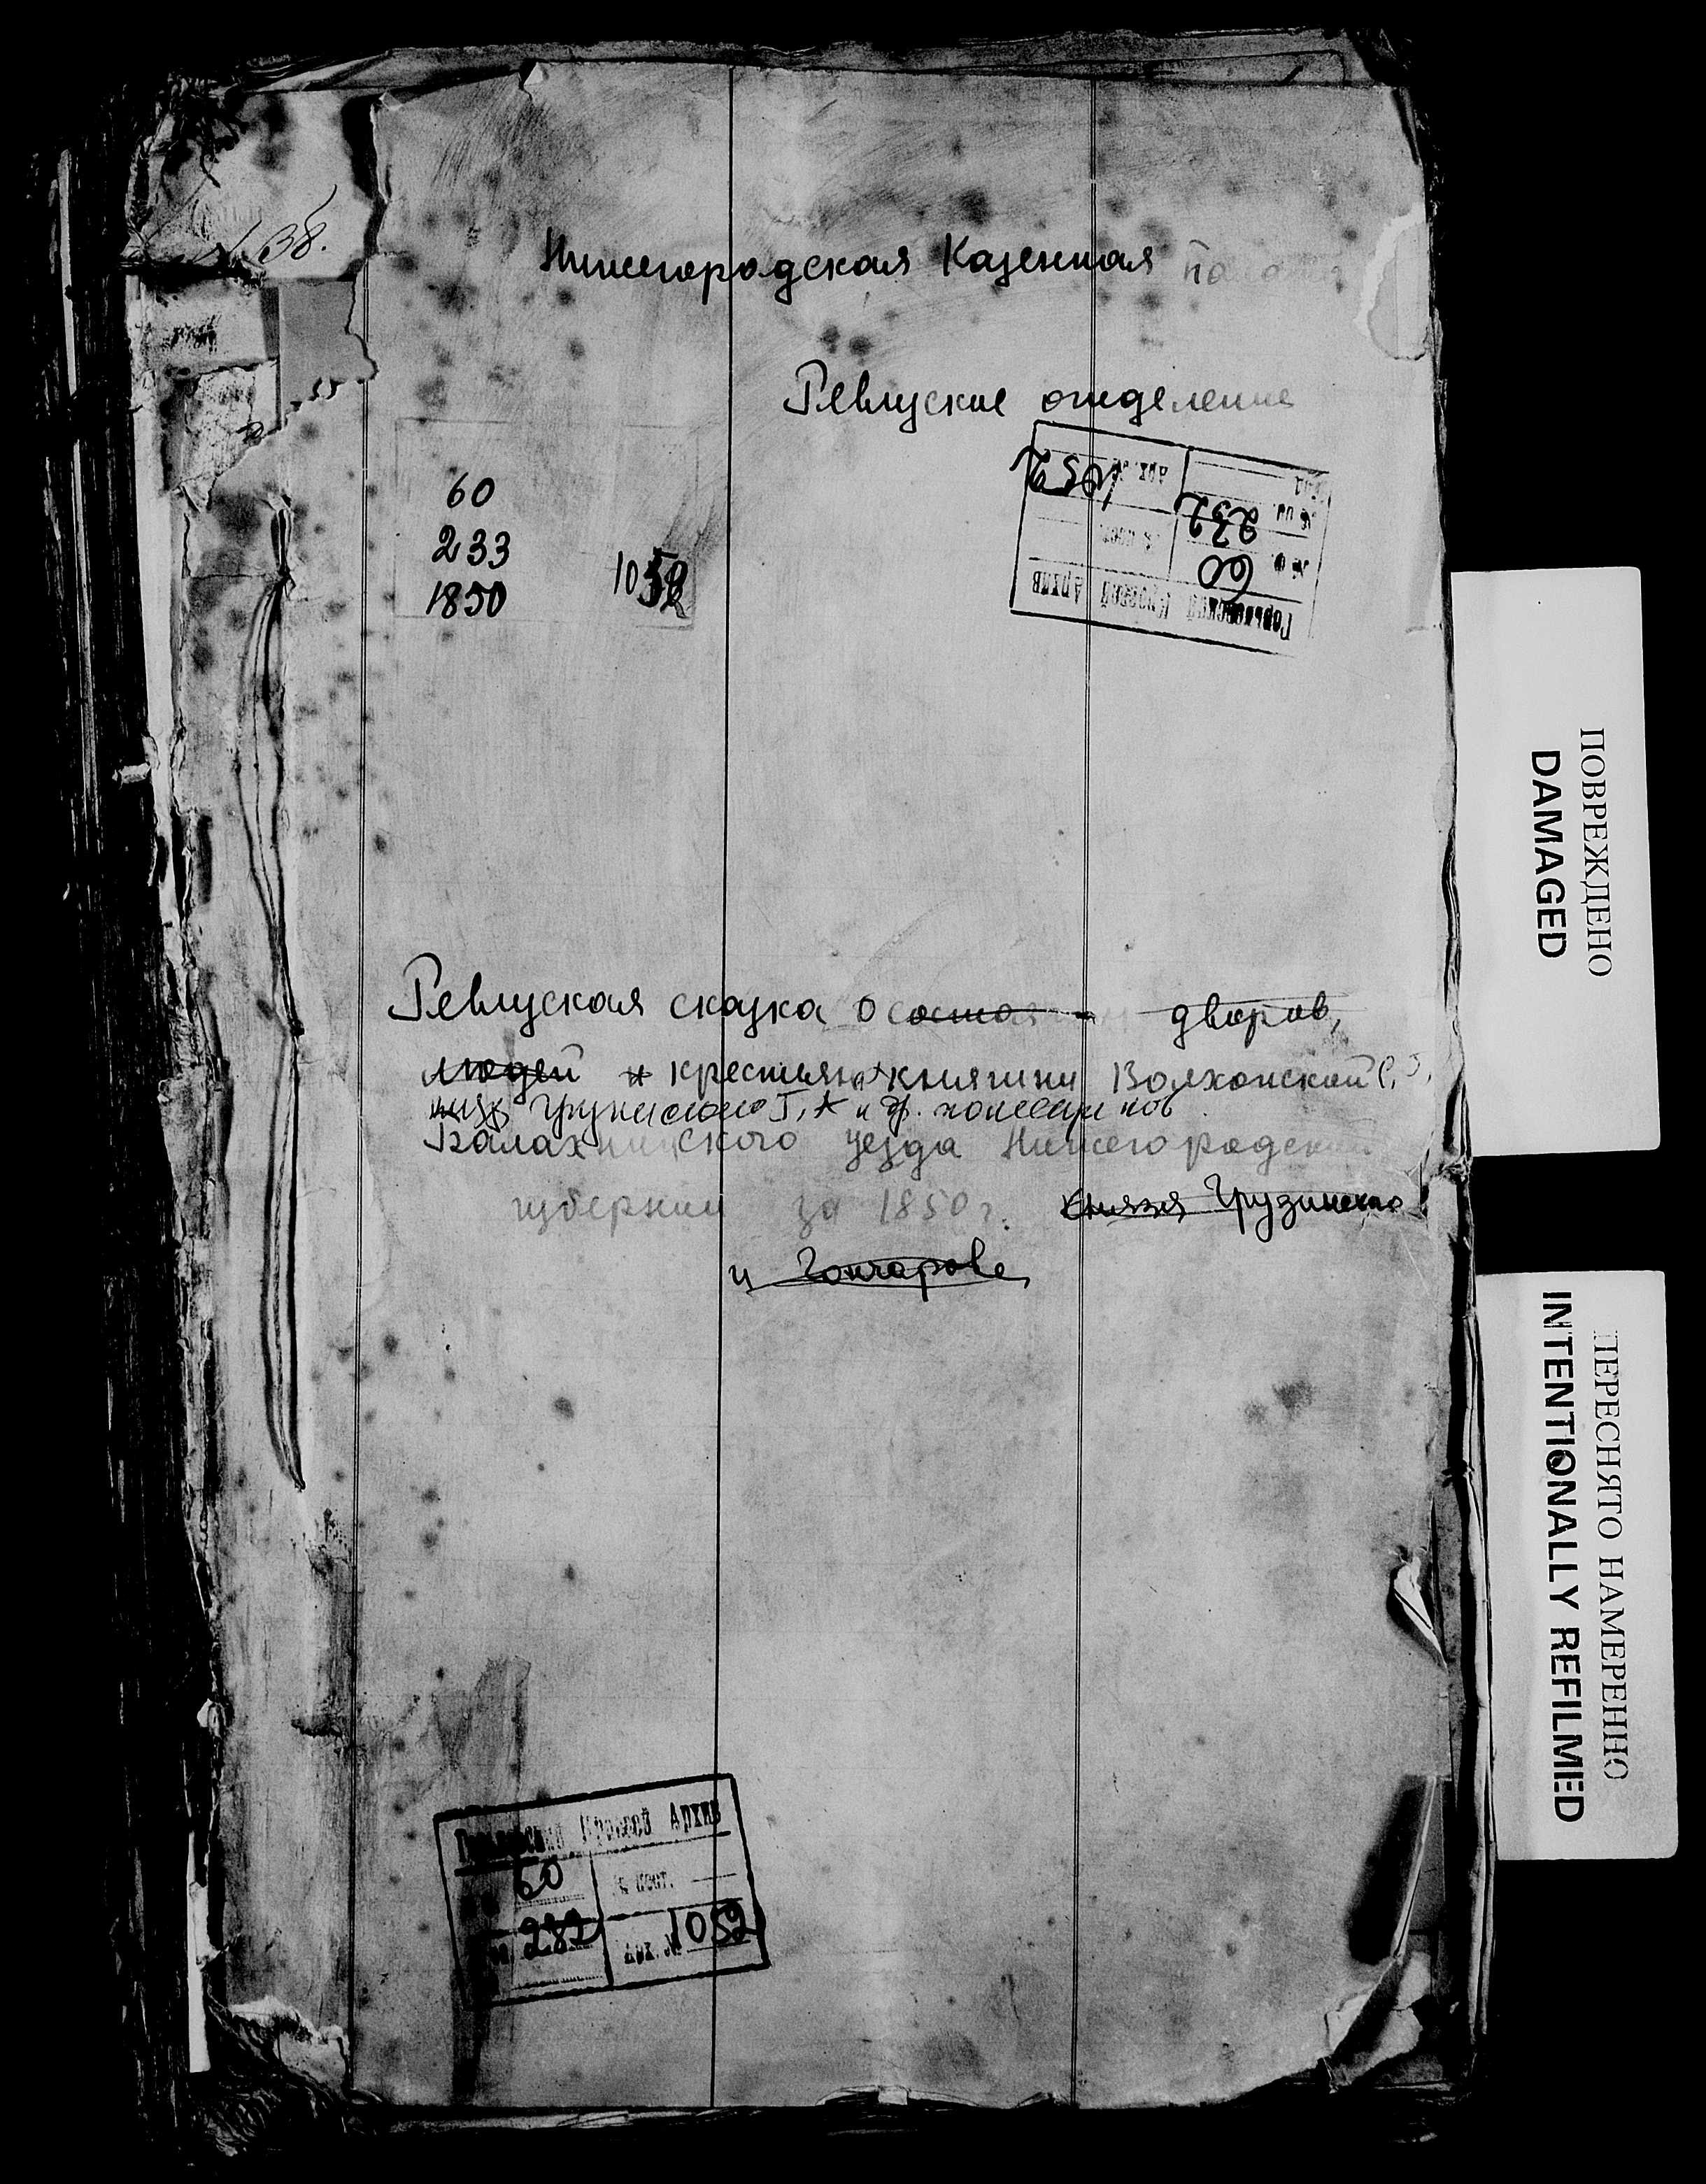 38.
Нижегородская Казенная
Ревизские отделение
60
233
1850
1052
Горьковский Краевой Архив
№ ф. 60
№ оп. 232
Арх. № 1052
Ревизская сказка о состоя дворов,
людей и крестьян княгини Волхонской С.
княз Грузинского Г, А и др. помещиков
Балахнинского уезда Нижегородской
губернии за 1850 г. Князя Грузинского
и Гончарова
Горьковский Краевой Архив
60 № пост.
232 Арх. № 1052
ПОВРЕЖДЕНО
DAMAGED
ПЕРЕСНЯТО НАМЕРЕННО
INTENTIONALLY REFILMED